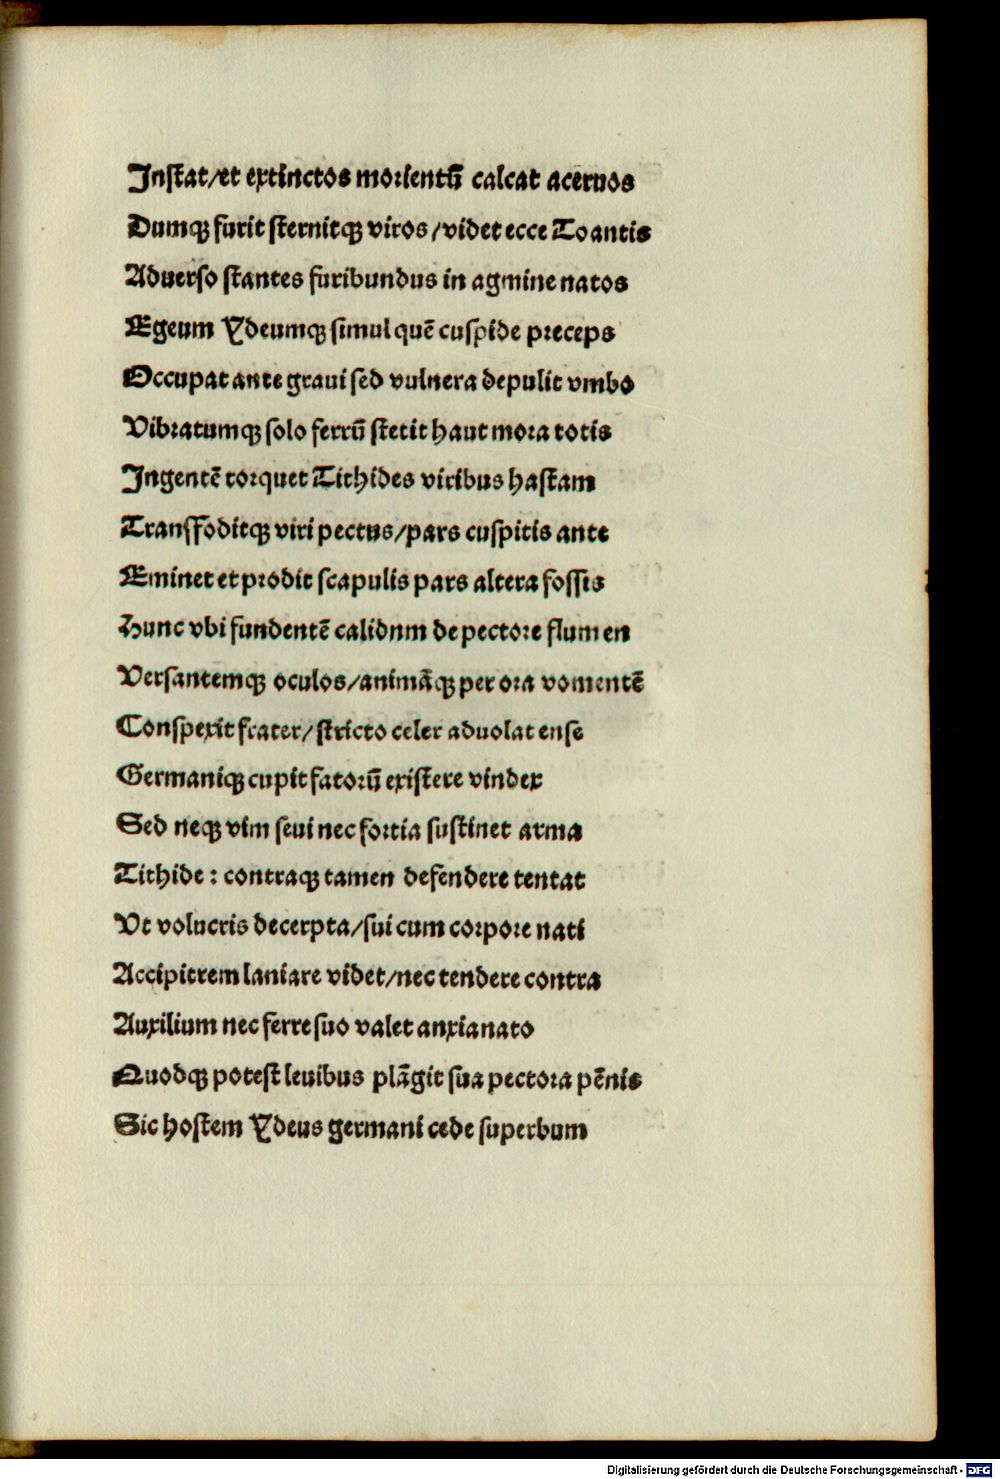 Inſtat/et extinctos morientū calcat acervos
Dumqꝫ furit ſternitqꝫ viros/videt ecce Toantis
Aduerſo ſtantes furibundus in agmine natos
Egeum Ydeumqꝫ simul quē cuſpide preceps
Occupat ante graui ſed vulnera depulit vmbo
Vibratumqꝫ ſolo ferrū ſtetit haut mora totis
Ingentē torquet Tithides viribus haſtam
Tranſſoditqꝫ viri pectus/pars cuſpitis ante
Eminet et prodit ſcapulis pars altera foſſis
Hunc vbi fundentē calidum de pectore flumen
Verſantemqꝫ oculos/animāqꝫ per ora vomentē
Conſpexit frater/ſtricto celer aduolat enſe
Germaniqꝫ cupit fatorū exiſtere vindex
Sed neqꝫ vim ſeui nec fortia ſuſtinet arma
Tithide : contraqꝫ tamen defendere tentat
Vt volucris decerpta/ſui cum corpore nati
Accipitrem laniare videt/nec tendere contra
Auxilium nec ferre ſuo valet anxia nato
Quodqꝫ poteſt leuibus plāgit ſua pectora pēnis
Sic hoſtem Ydeus germani cede ſuperbum
Digitalisierung gefördert durch die Deutsche Forschungsgemeinschaft - DFG